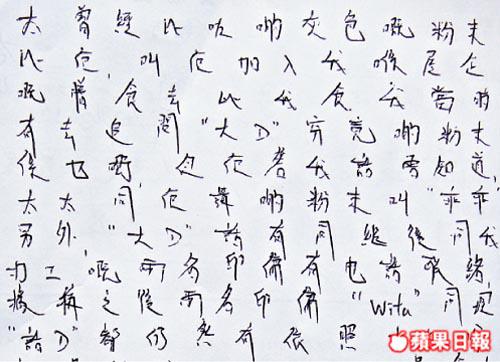 太曾經比咗啲灰色嘅粉末
比佢,叫佢加入我喺屋企
嘅嘢食去比我食,我當時
有去追問"大D"究竟啲粉末
係乜嘢,但佢答我話唔知道,
太太同佢講啲粉末叫"乖乖
另外,"大D"話有同繼後同我
打工嘅兩名印傭有电話聯絡,
據稱之後兩名印傭"Wita"同
都仍然有依照
蘋果日報